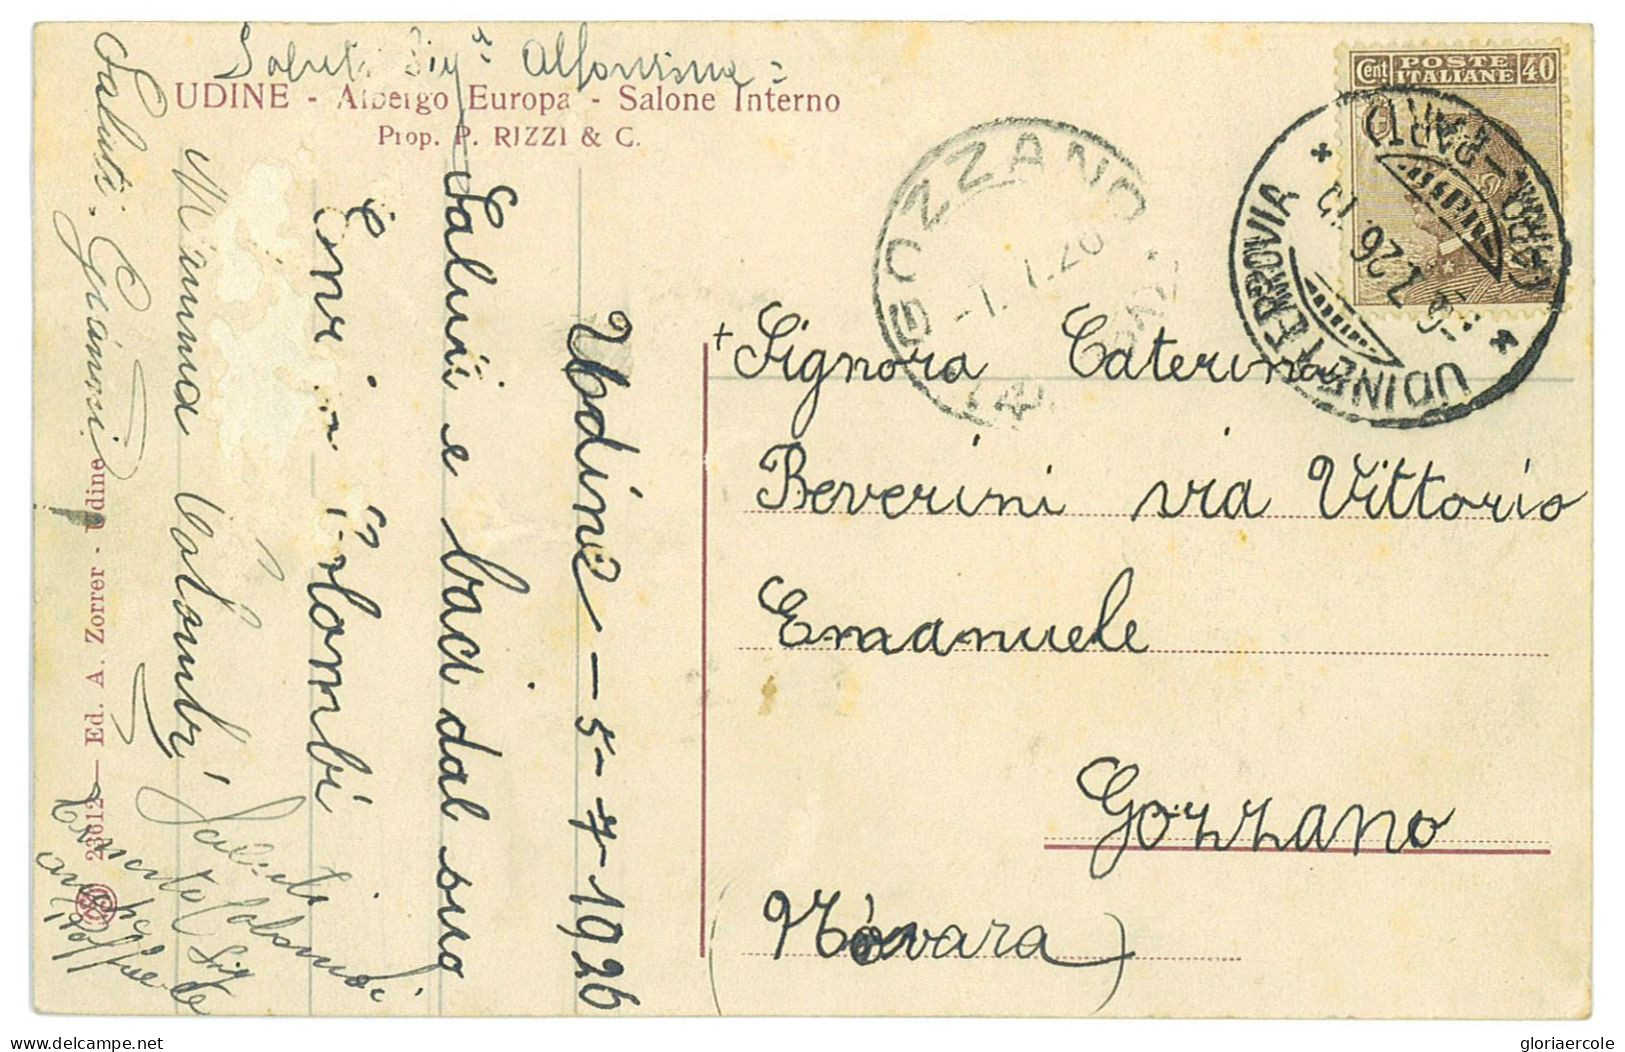 Saluti Sigra Alfonsina
UDINE - Albergo Europa - Salone Interno
Prop. P. RIZZI & C.
POSTE
ITALIANE
Cent 40
UDINE FERROVIA
GOZZANO
-7.7.26
Udine - 5-7-1926
Saluti e baci dal suo
Colombi
Mamma Colombi
Saluti
Saluti
Ernesto Colombi
Sig
23612 — Ed. A. Zorrer - Udine
+ Signora Caterina
Beverini via Vittorio
Emanuele
Gozzano
(Novara)
delcampe.net
gloriaercole